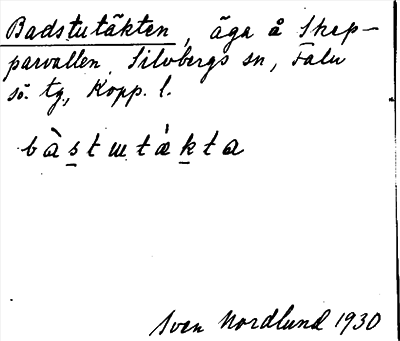 Badstutäkten, äga å Skep-
parvallen, Silvbergs sn, Falu
sö. tg., Kopp. l.
bàstɯtä̀kta
Sven Nordlund 1930